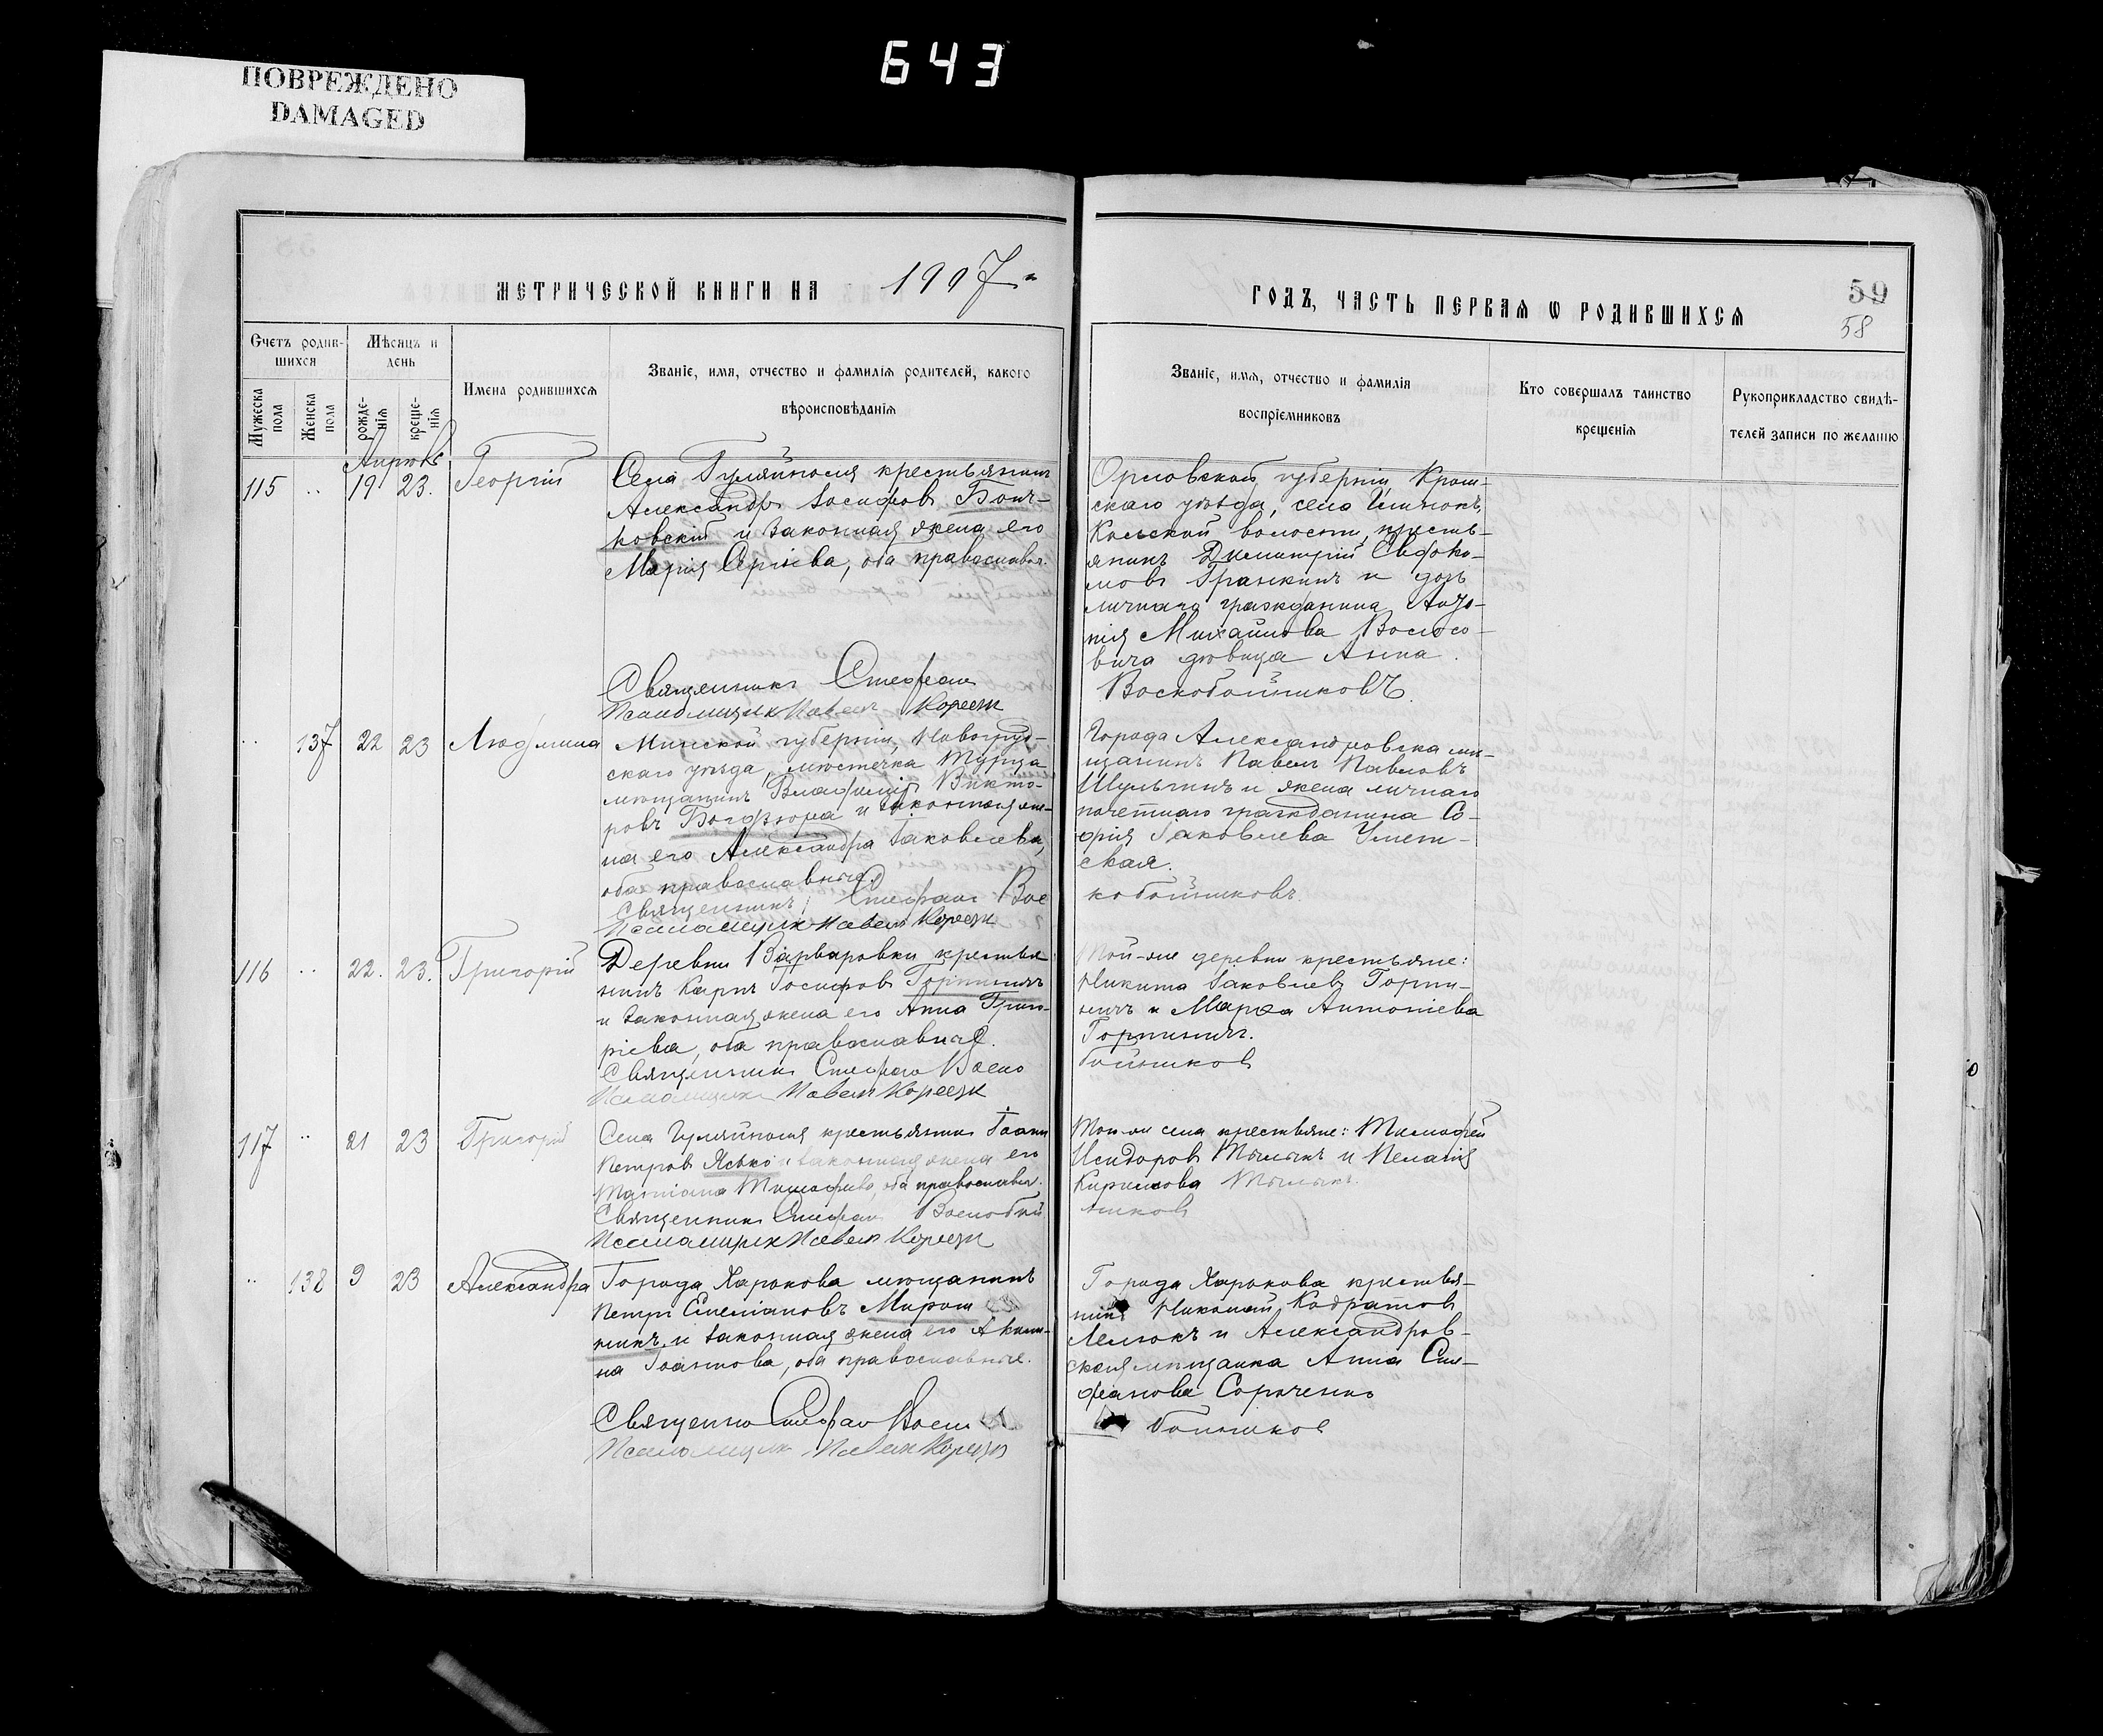 643
ПОВРЕЖДЕНО
DAMAGED
МЕТРИЧЕСКОЙ КНИГИ НА 1907
ГОДЪ, ЧАСТЬ ПЕРВАЯ Ѡ РОДИВШИХСЯ
59
58
Счетъ родив-
шихся
Мѣсяцъ и
день
Мужеска
пола
Женска
пола
рожде-
нія
креще-
нія
Имена родившихся
Званіе, имя, отчество и фамилія родителей, какого
вѣроисповѣданія
Званіе, имя, отчество и фамилія
воспріемниковъ
Кто совершалъ таинство
крещенія
Рукоприкладство свидѣ-
телей записи по желанію
Апрѣль
115 " 19 23. Георгій
Села Гуляйполя крестьянинъ
Александръ Іосифовъ
ковскій и законная жена его
Марія Сергіева, оба православн.
Священникъ Стефанъ
Псаломщикъ Павелъ
Орловской губерніи, Кром-
скаго уѣзда, села
волости, кресть-
янинъ Димитрій Евдоки-
мовъ Гранкинъ и дочь
личнаго гражданина
нія Михайлова Волосо-
вича дѣвица Анна.
Воскобойниковъ
" 137 22 23 Людмила
Минской губерніи, Новогруд-
скаго уѣзда, мѣстечка Турца
мѣщанинъ Владиміръ Викто-
ровъ и законная же-
на его Александра Іаковлева,
оба православные.
Священникъ Стефанъ Вос
Псаломщикъ Павелъ
Города Александровска мѣ-
щанинъ Павелъ Павловъ
Шульгинъ и жена личнаго
почетнаго гражданина Со-
фія Іаковлева
ская.
кобойниковъ.
116 " 22. 23. Григорій
Деревни Варваровки крестья
нинъ Карпъ Іосифовъ Горпиничъ
и законная жена его Анна Григо-
ріева, оба православные.
Священникъ Стефанъ Воско
Псаломщикъ Павелъ
Той-же деревни крестьяне:
Никита Іаковлевъ Горпи-
ничъ и Марѳа Антоніева
Горпиничъ.
бойниковъ
117 " 21 23 Григорій
Села Гуляйполя крестьянинъ Іоаннъ
Петровъ Ясько и законная жена его
Татіана Тимофеева, оба православн.
Священникъ Стефанъ Воскобой
Псаломщикъ Павелъ
Той-же села крестьяне: Тимофей
Исидоровъ и Пелагія
Кирилова
никовъ
" 138 9 23 Александра
Города Харькова мѣщанинъ
Петръ Стефановъ Мирош
никъ и законная жена его Акили-
на Іоаннова, оба православные.
Священникъ Стефанъ Воско
Псаломщикъ Павелъ
Города Харькова крестья-
нинъ Николай Кодратовъ
и Александров-
ская мѣщанка Анна Сте-
фанова
бойниковъ